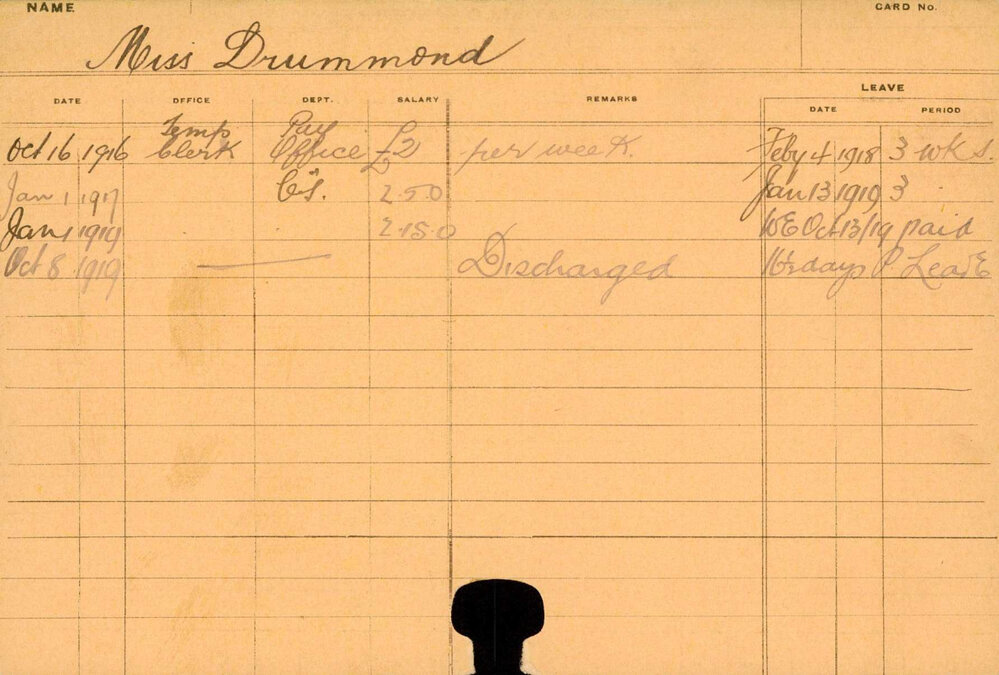 NAME CARD No.
Miss Drummond
LEAVE
DATE OFFICE DEPT. SALARY REMARKS DATE PERIOD
Temp Pay
Oct 16 1916 Clerk Office £2 per week. Feby 4 1918 3 wks.
Jan 1 1917 2.5.0 Jan 13 1919 3
Jan 1 1919 2.15.0 WE Oct 13/19 paid
Oct 8 1919 Discharged days P Leave